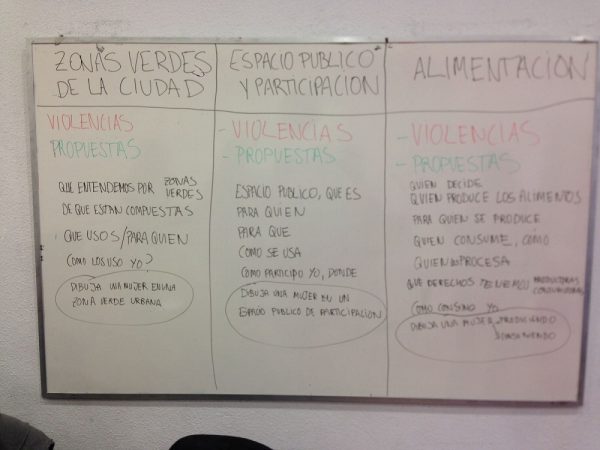 ZONAS VERDES
DE LA CIUDAD
VIOLENCIAS
PROPUESTAS
QUE ENTENDEMOS POR ZONAS VERDES
DE QUE ESTAN COMPUESTAS
QUE USOS/PARA QUIEN
COMO LOS USO YO?
DIBUJA UNA MUJER EN UNA
ZONA VERDE URBANA
ESPACIO PUBLICO
Y PARTICIPACION
- VIOLENCIAS
- PROPUESTAS
ESPACIO PUBLICO, QUE ES
PARA QUIEN
PARA QUE
COMO SE USA
COMO PARTICIPO YO, DONDE
DIBUJA UNA MUJER EN UN
ESPACIO PUBLICO DE PARTICIPACION
ALIMENTACION
- VIOLENCIAS
- PROPUESTAS
QUIEN DECIDE
QUIEN PRODUCE LOS ALIMENTOS
PARA QUIEN SE PRODUCE
QUIEN CONSUME, COMO
QUIEN LOS PROCESA
QUE DERECHOS TENEMOS PRODUCTORAS
CONSUMIDORAS
COMO CONSUMO YO
DIBUJA UNA MUJER PRODUCIENDO